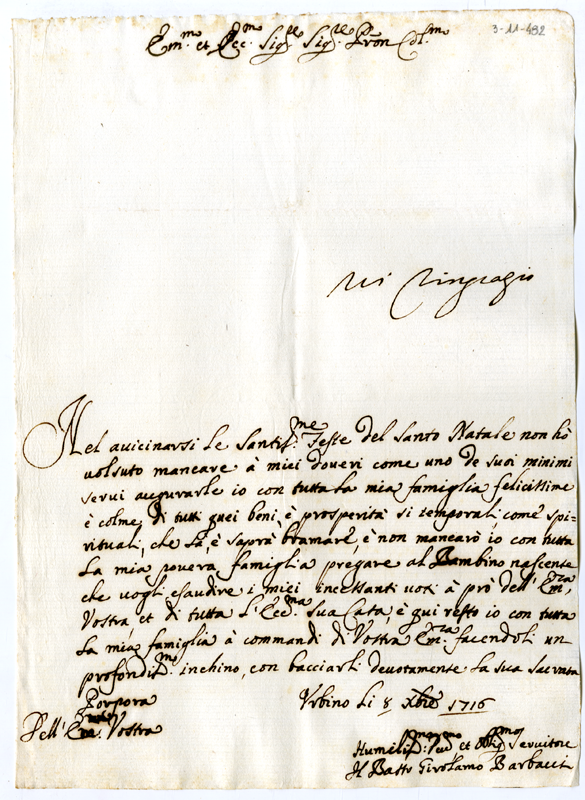 3-11-492
Em.mo et Ecc.mo Sig.re Sig.re Pron Col.mo
Vi Ringragio
Nel auicinarsi le Santiss.me Feste del Santo Natale non hò
uolsuto mancare à miei doueri come uno de suoi minimi
serui augurarle io con tutta la mia famiglia felicissime
è colme di tutti quei beni, è prosperità si temporali come spi=
rituali, che sà, è saprà bramare, è non mancarò io con tutta
la mia pouera famiglia pregare al Bambino nascente
che uogli esaudire i miei incessanti uoti à prò dell' Em.za
Vostra, et di tutta l'Ecc.ma sua Casa, è qui resto io con tutta
la mia famiglia à commandi di Vostra Em.za facendoli un
profondiss.mo inchino, con bacciarli deuotamente la sua sacrata
Porpora
Vrbino li 8 Xbre 1716
Dell' Em. Vostra
Humiliss.mo et Oblig.mo Seruitore
Il Batto Girolamo Barbacci